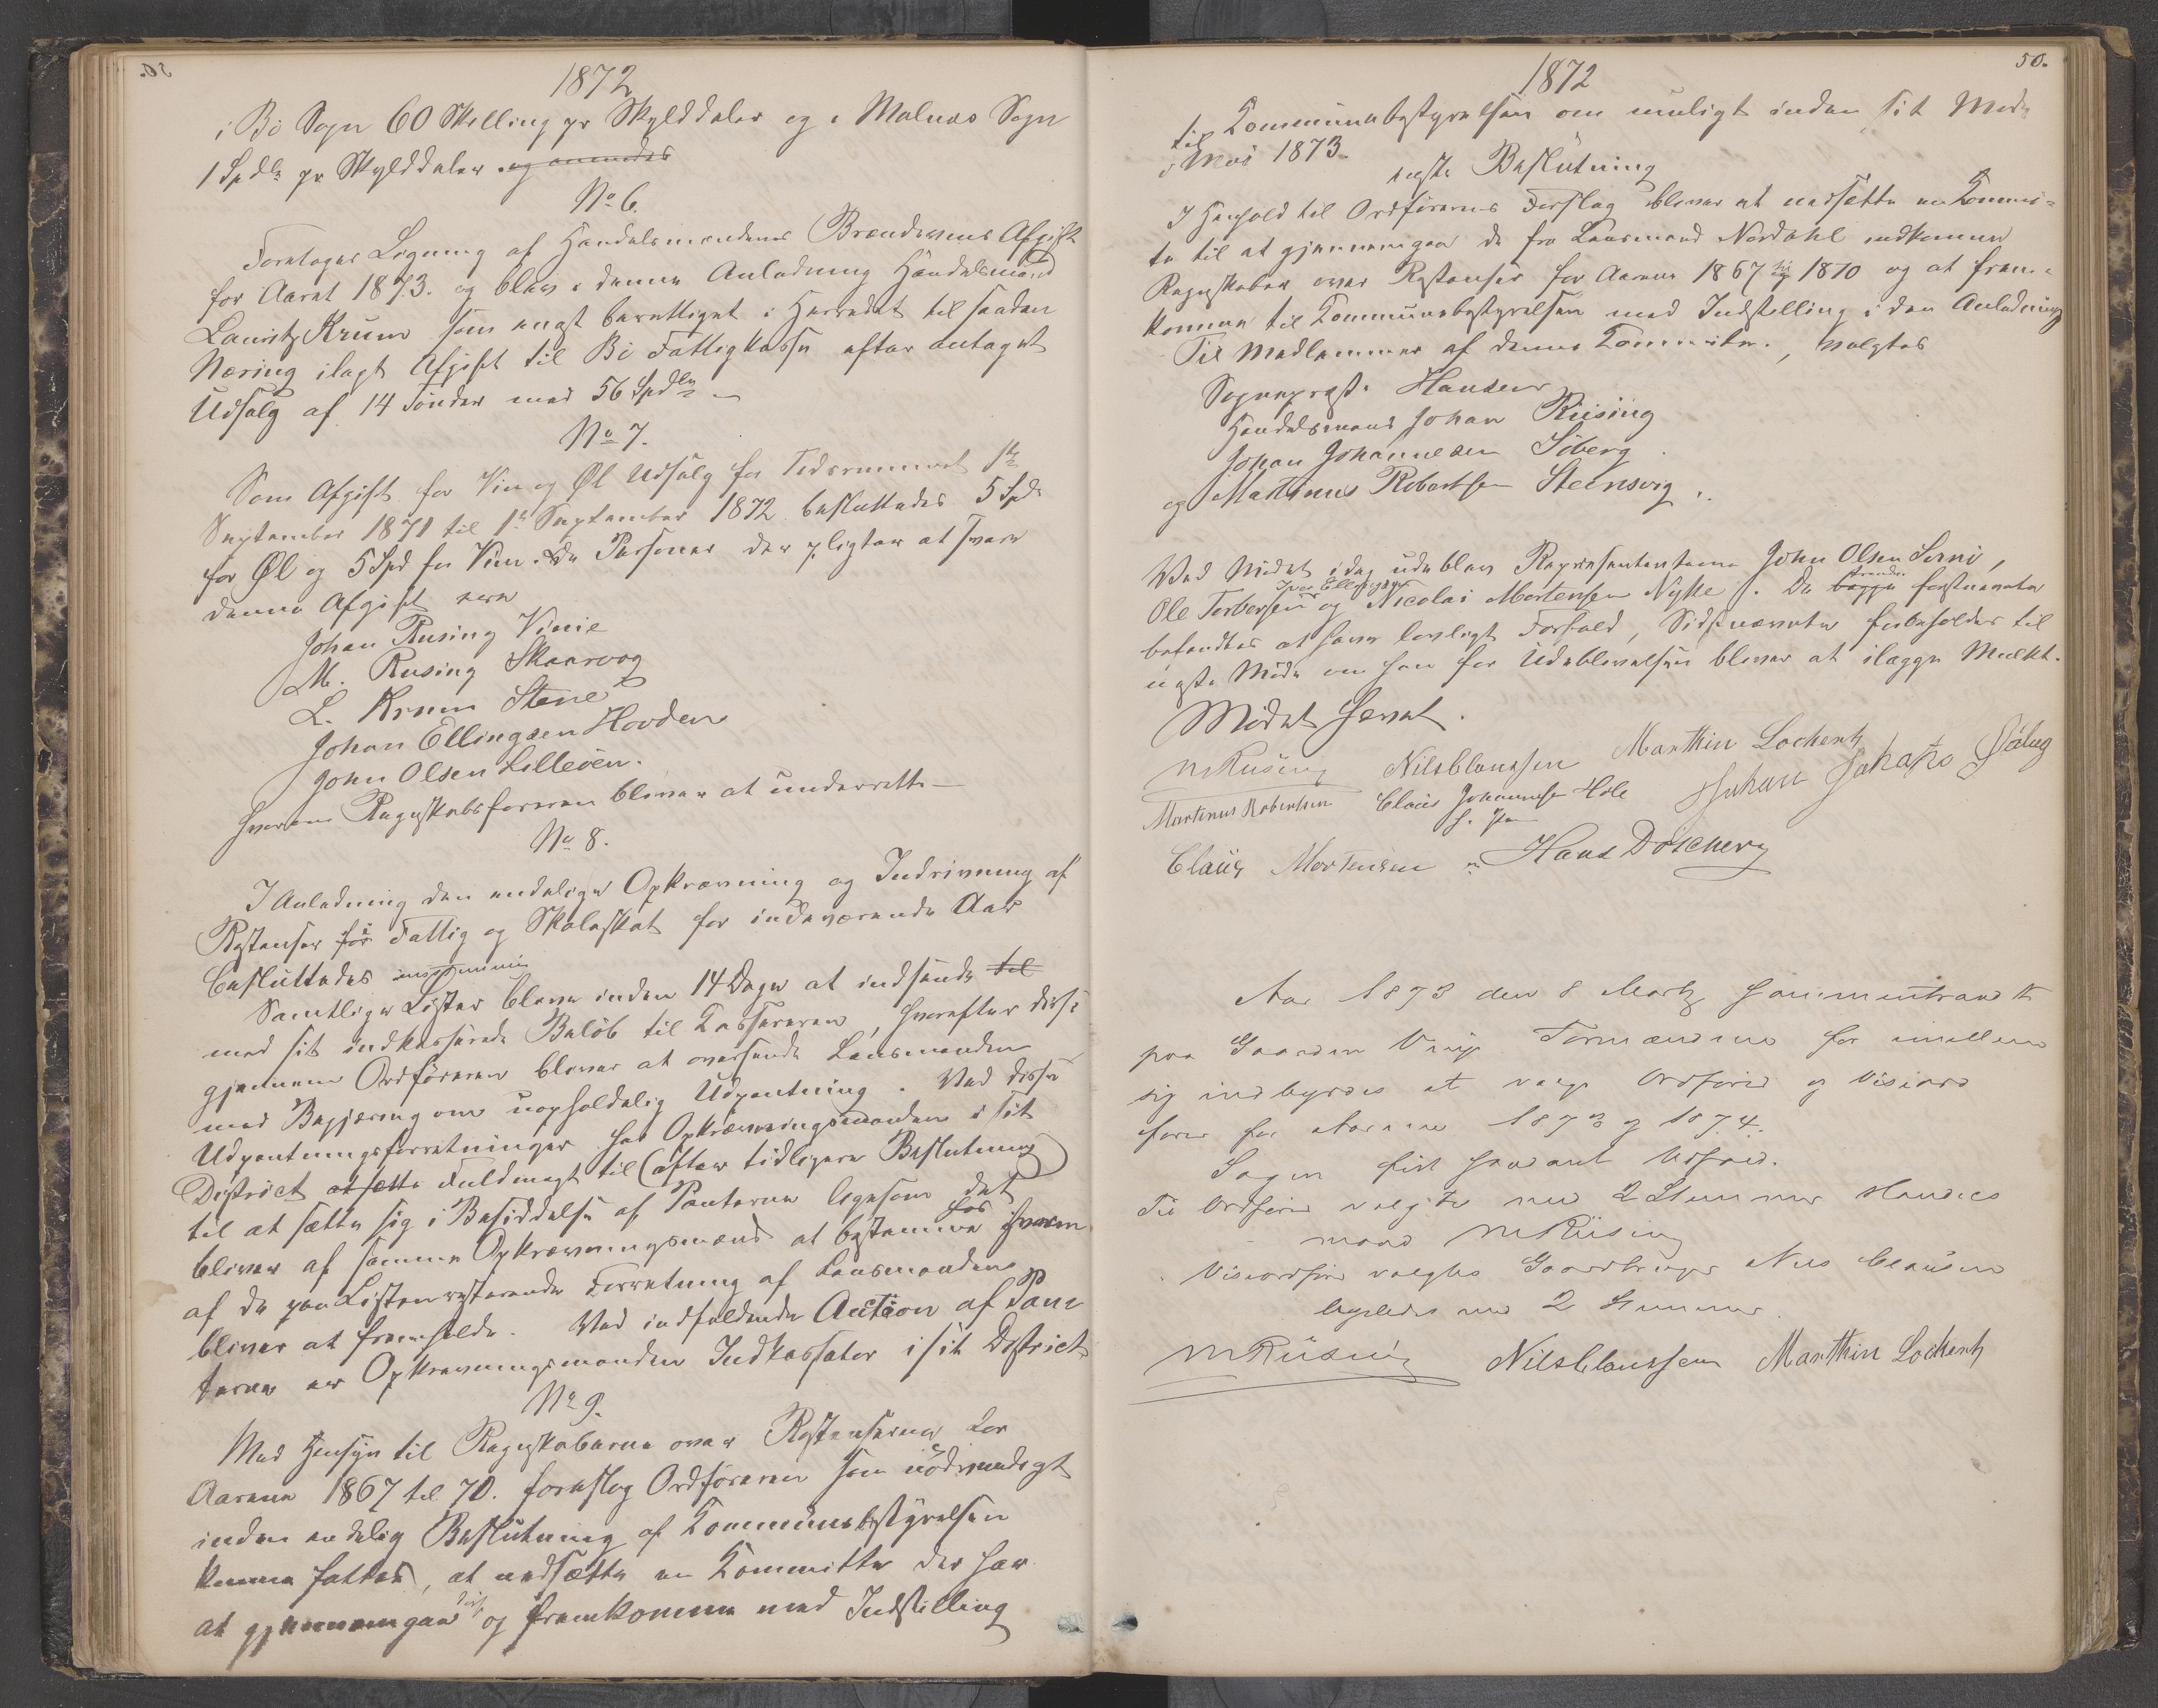 1872
i Bö Sogn 60 Skilling pr Skylddaler og i Malnæs Sogn
1 Spdlr pr Skylddaler. og anmodes
No 6.
Foretoges Ligning af Handelsmændenes Brændevins Afgift
for Aaret 1873. og blev i denne Anledning Handelsmand
Lauritz Krum som enest berettiget i Herredet til saadan
Næring ilagt Afgift til Bö Fattigkasse efter antaget
Udsalg af 14 Tönder med 56 Spdlr
No 7.
Som Afgift for Viin og Øl Udsalg for Tidsrummet 1ste
September 1871 til 1ste September 1872 besluttedes 5 Spd
for Øl og 5 Spd for Viin. De Personer der pligter at svare
denne Afgift ere
Johan Rüsing Vinie
M. Rüsing Skaarvog
L. Krum Steine
Johan Ellingsen Hovden
John Olsen Lilleöen.
hvorom Regnskabsföreren bliver at underrette
No 8.
I Anledning den endelige Opkrævning og Inddrivning af
Restanser for i Fattig og Skoleskat for indeværende Aar
besluttedes
Samtlige Lister bleve inden 14 Dage at indsende til
med sit indkasserede Belöb til Kassereren, hvorefter disse
gjennem Ordföreren bliver at oversende Lensmanden
med Begjæring om uopholdelig Udpantning. Ved disse
Udpantningsforretninger har Opkrævningsmanden i sit
District at sette Fuldmagt til (efter tidligere Beslutning)
til at sætte sig i Besiddelse af Panterne ligesom det
bliver af samme Opkrævningsmand at bestemme hos hvem
af de paa Listen resterende Forretning af Lensmanden
bliver at fremholde. Ved indfaldende Auction af Pan-
terne er Opkrævningsmanden Indkassator i sit District
No 9.
Med Hensyn til Regnskaberne over Restanserne for
Aarene 1867 til 70. foreslog Ordföreren som nödvendigt
inden endelig Beslutning af Kommunebestyrelsen
kunne fattes, at nedsætte en Kommitte der har
at gjennemgaa disse og fremkomme med Indstilling
50.
1872
til Kommunebestyrelsen om muligt inden sit Möde
i Mai 1873.
Beslutning
I Henhold til Ordförerens Forslag bliver at nedsætte en Kommi-
te til at gjennemgaa de fra Lensmand Nordahl indkomne
Regnskaber over Restanser for Aarene 1867 til 1870 og at frem-
komme til Kommunebestyrelsen med Indstilling i den Anledning
Til Medlemmer af denne Kommite, valgtes
Sognepræst Hansen
Handelsmand Johan Rüsing
Johan Johannesen Söberg
og Martinus Robertsen Steensvig.
Ved Mödet idag udeblev Repræsentanterne John Olsen
Ole Torbersen Iver Ellingsen og Nicolai Mortensen Nykke. De begge trende förstnævnte
befandtes at have lovligt Forfald, Sidstnævnte forbeholdes til
næste Möde om han for Udeblivelsen bliver at ilægge Mulkt.
Mödet hævet.
M Rüsing Nils Claussen Marthin Lockertz
Martinus Robertsen Claus Johannesen Hole Johan Johans Söberg
Claus Mortensen Hans Döscherg
Aar 1873 den 8 Marts sammentraadte
paa Gaarden Vinje Formændene for imellem
sig indbyrdes at vælge Ordförer og Viseord
förer for Aarene 1873 og 1874.
Sagen fik saadant Udfald.
Til Ordförer valgte med 2 Stemmer Handels
mand M Rüsing
Viseordförer valgtes Gaardbruger Nils Clausen
ligeledes med 2 Stemmer.
M Rüsing Nils Claussen Marthin Lockertz